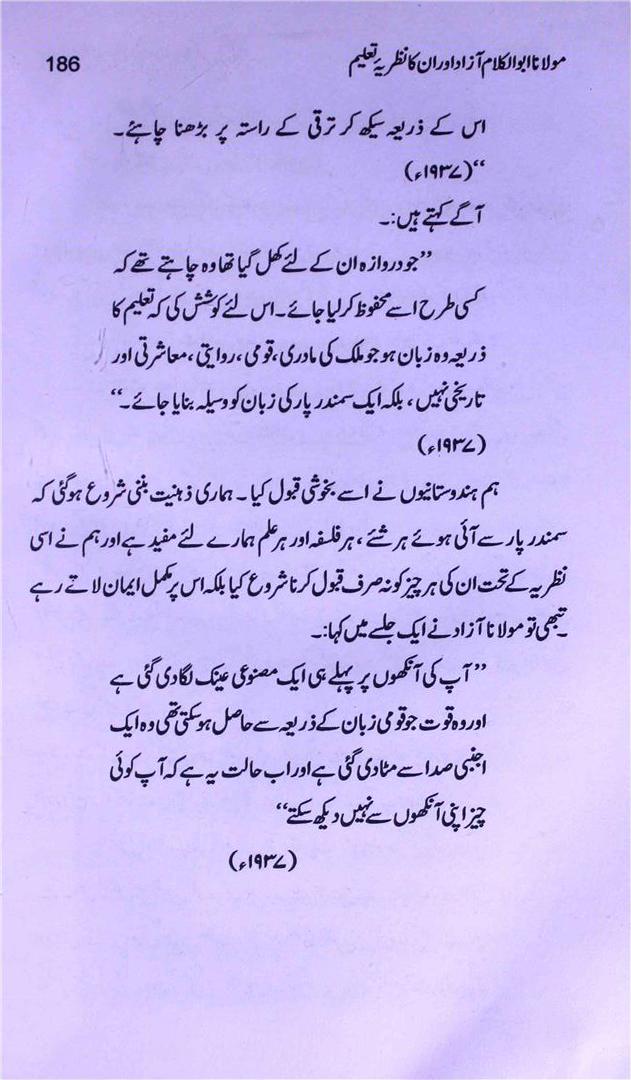 مولانا ابوالکلام آزاد اور ان کا نظریۂ تعلیم 186
اس کے ذریعہ سیکھ کر ترقی کے راستہ پر بڑھنا چاہئے۔
‘‘(۱۹۳۷ء)
آگے کہتے ہیں:۔
’’جو دروازہ ان کے لئے کھل گیا تھا وہ چاہتے تھے کہ
کسی طرح اسے محفوظ کر لیا جائے۔ اس لئے کوشش کی کہ تعلیم کا
ذریعہ وہ زبان ہو جو ملک کی مادری، قومی، روایتی، معاشرتی اور
تاریخی نہیں، بلکہ ایک سمندر پار کی زبان کو وسیلہ بنایا جائے۔‘‘
(۱۹۳۷ء)
ہم ہندوستانیوں نے اسے بخوشی قبول کیا۔ ہماری ذہنیت بننی شروع ہو گئی کہ
سمندر پار سے آئی ہوئے ہر شئے، ہر فلسفہ اور ہر علم ہمارے لئے مفید ہے اور ہم نے اسی
نظریہ کے تحت ان کی ہر چیز کو نہ صرف قبول کرنا شروع کیا بلکہ اس پر مکمل ایمان لاتے رہے
۔ تبھی تو مولانا آزاد نے ایک جلسے میں کہا:۔
’’آپ کی آنکھوں پر پہلے ہی ایک مصنوعی عینک لگا دی گئی ہے
اور وہ قوت جو قومی زبان کے ذریعہ سے حاصل ہو سکتی تھی وہ ایک
اجنبی صدا سے مٹا دی گئی ہے اور اب حالت یہ ہے کہ آپ کوئی
چیز اپنی آنکھوں سے نہیں دیکھ سکتے‘‘
(۱۹۳۷ء)